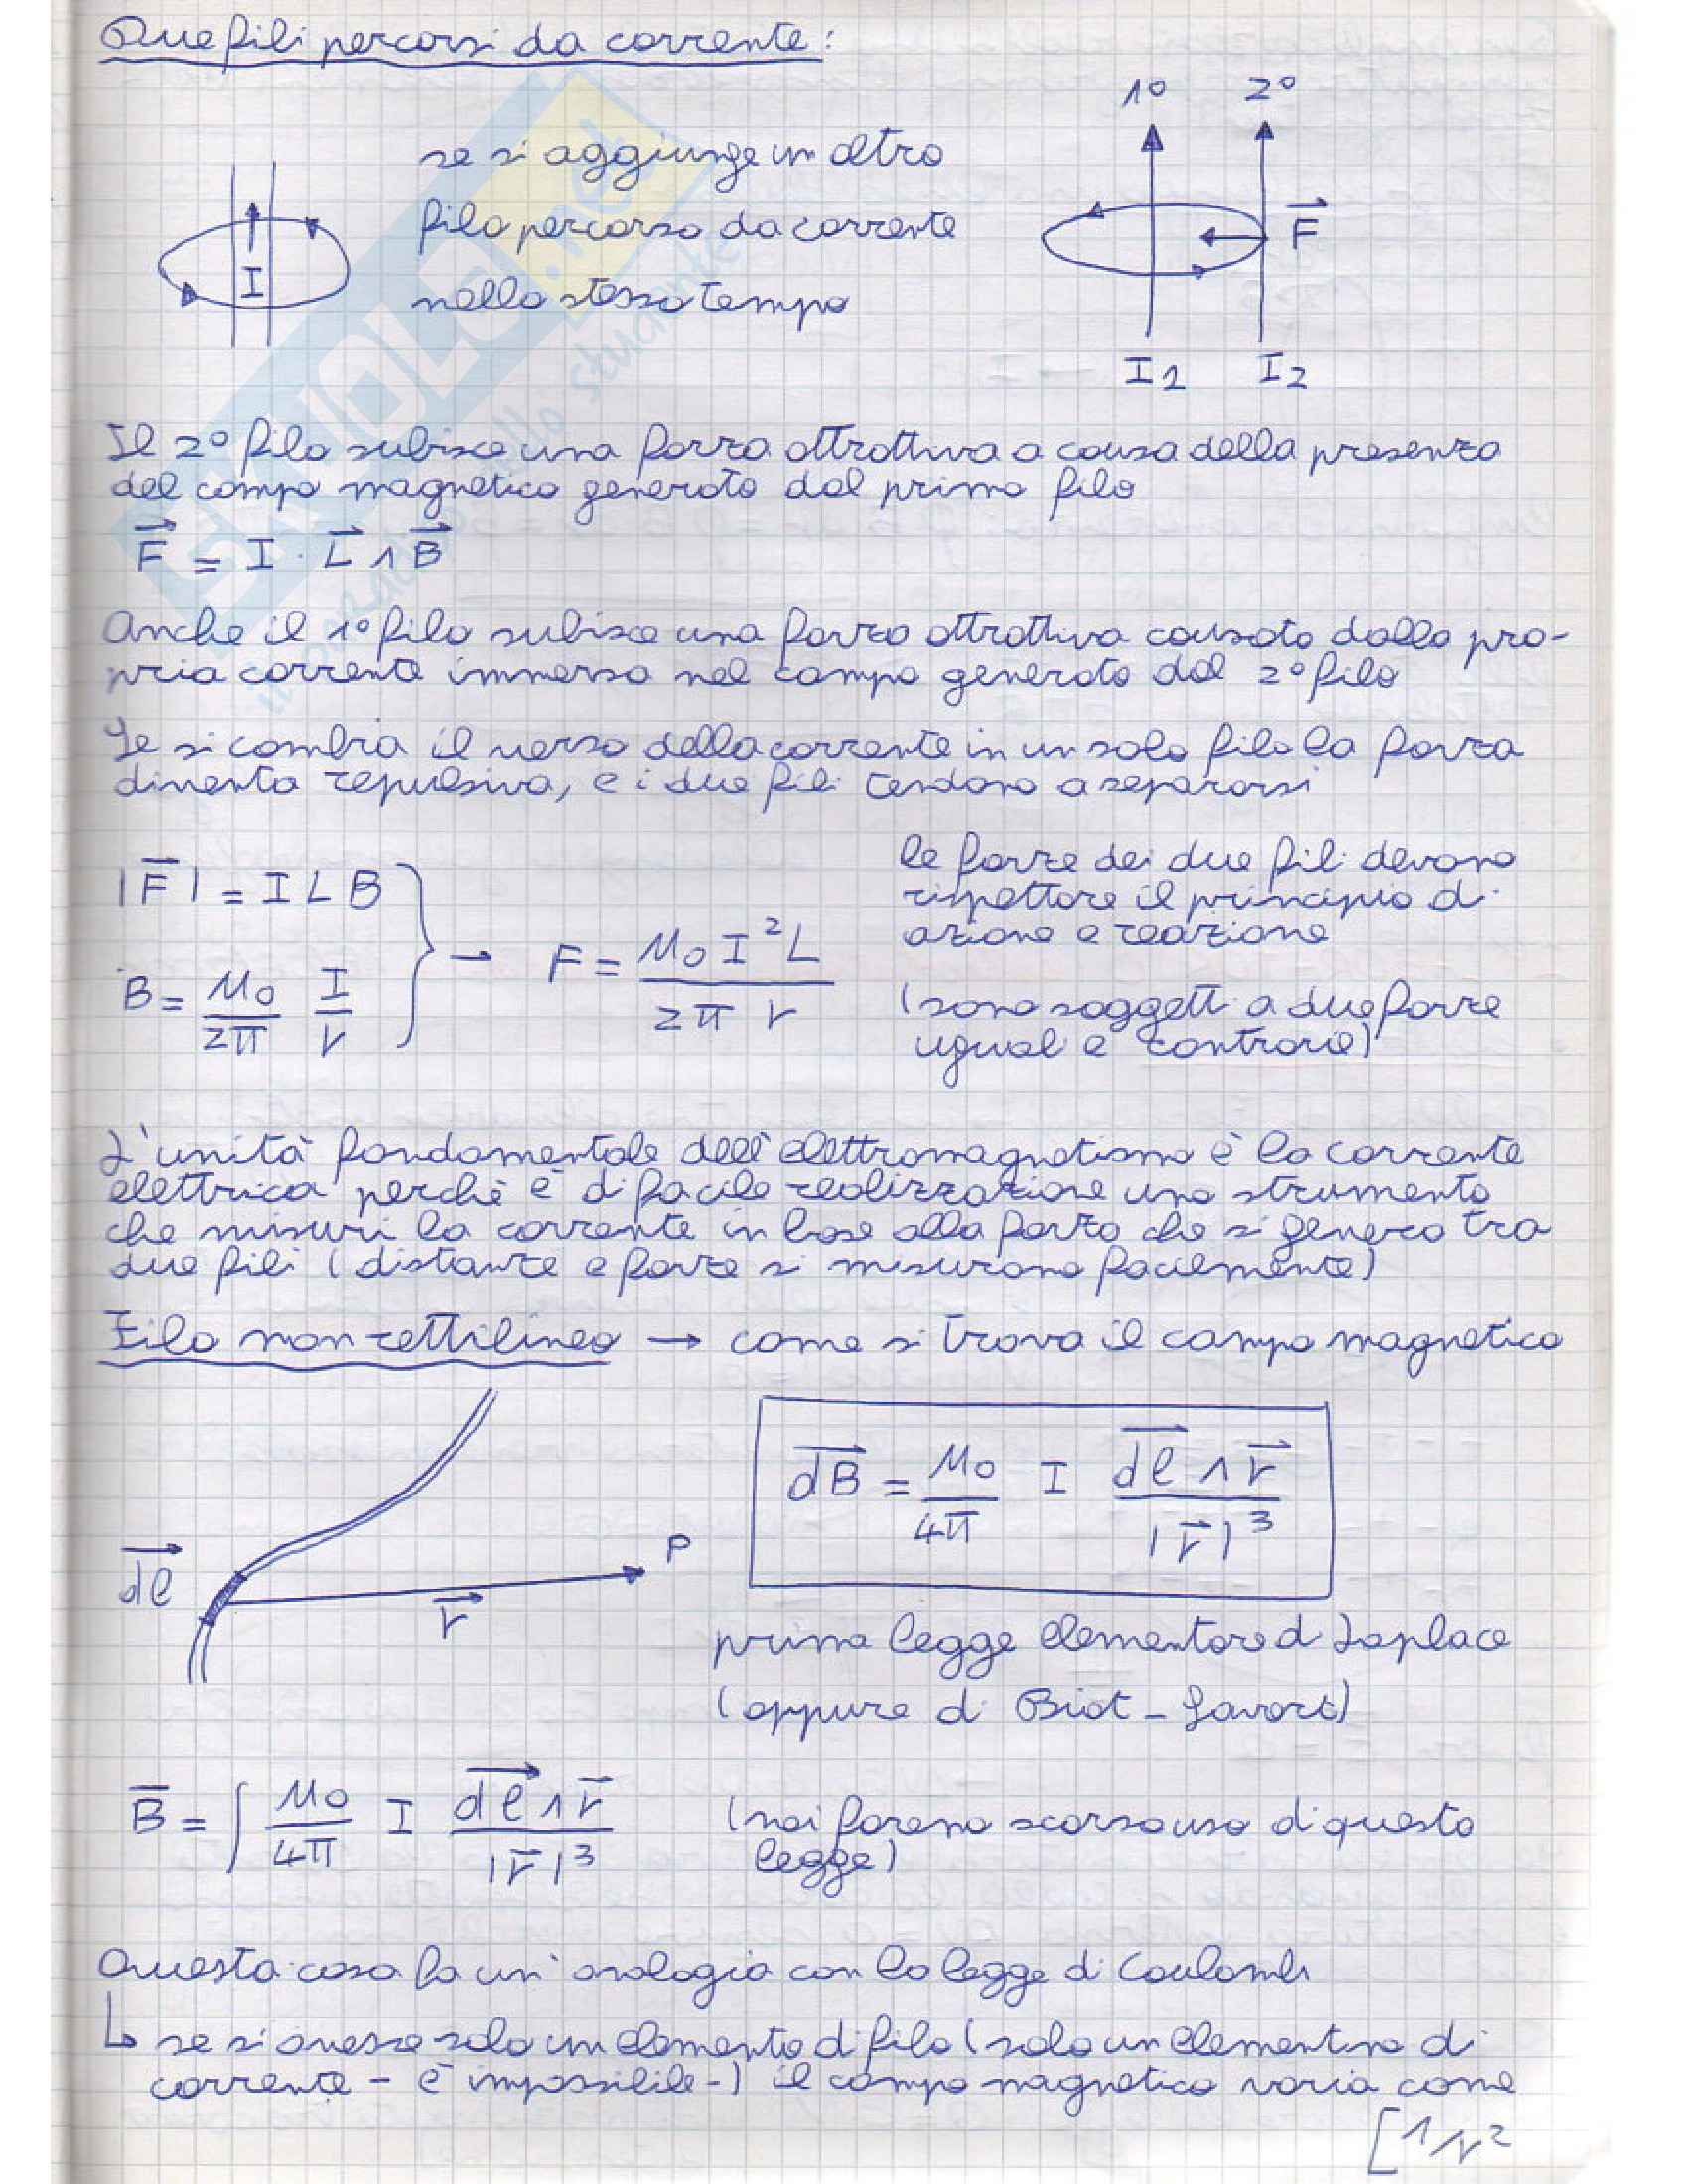 Due fili percorsi da corrente:
1° 2°
se si aggiunge un altro
filo percorso da corrente
nello stesso tempo
I
F
I1 I2
Il 2° filo subisce una forza attrattiva a causa della presenza
del campo magnetico generato dal primo filo
F = I · L ∧ B
Anche il 1° filo subisce una forza attrattiva causata dalla pro-
pria corrente immersa nel campo generato dal 2° filo
Se si cambia il verso della corrente in un solo filo la forza
diventa repulsiva, e i due fili tendono a separarsi
|F| = I L B
B = μ0/2π I/r
→ F = μ0 I² L / 2π r
le forze dei due fili devono
rispettare il principio di
azione e reazione
(sono soggetti a due forze
uguali e contrarie)
L'unità fondamentale dell'elettromagnetismo è la corrente
elettrica perchè è di facile realizzazione uno strumento
che misuri la corrente in base alla forza che si genera tra
due fili (distanze e forze si misurano facilmente)
Filo non rettilineo → come si trova il campo magnetico
dl
r
P
dB = μ0/4π I dl ∧ r / |r|³
prima legge elementare di Laplace
(oppure di Biot - Savart)
B = ∫ μ0/4π I dl ∧ r / |r|³
(noi faremo scarso uso di questa
legge)
Questa cosa ha un'analogia con la legge di Coulomb
↳ se si avesse solo un elemento di filo (solo un elementino di
corrente - è impossibile -) il campo magnetico varia come
[1/r²
SKUOLA.net
il paradiso dello studente